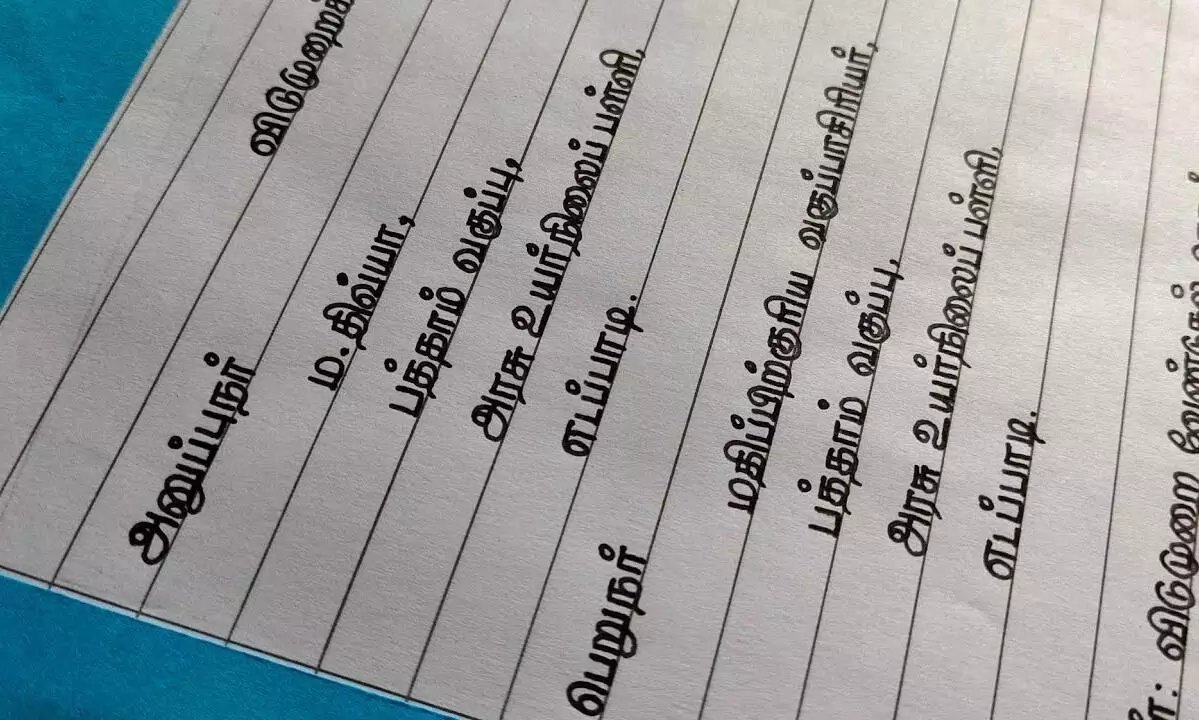 விடுமுறைக்
அனுப்புநர்
ம.திவ்யா,
பத்தாம் வகுப்பு,
அரசு உயர்நிலைப் பள்ளி,
எடப்பாடி.
பெறுநர்
மதிப்பிற்குரிய வகுப்பாசிரியர்,
பத்தாம் வகுப்பு,
அரசு உயர்நிலைப் பள்ளி,
எடப்பாடி.
: விடுமுறை வேண்டுதல்